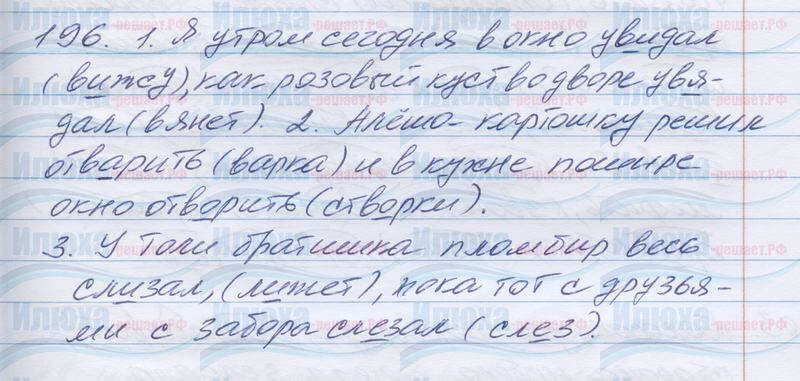 196. 1. Я утром сегодня в окно увидал
(вижу), как розовый куст во дворе увя-
дал (вянет). 2. Алёша - картошку решил
отварить (варка) и в кухне пошире
окно отворить (створки).
3. У Толи братишка пломбир весь
слизал, (лижет), пока тот с друзья-
ми с забора слезал (слез).